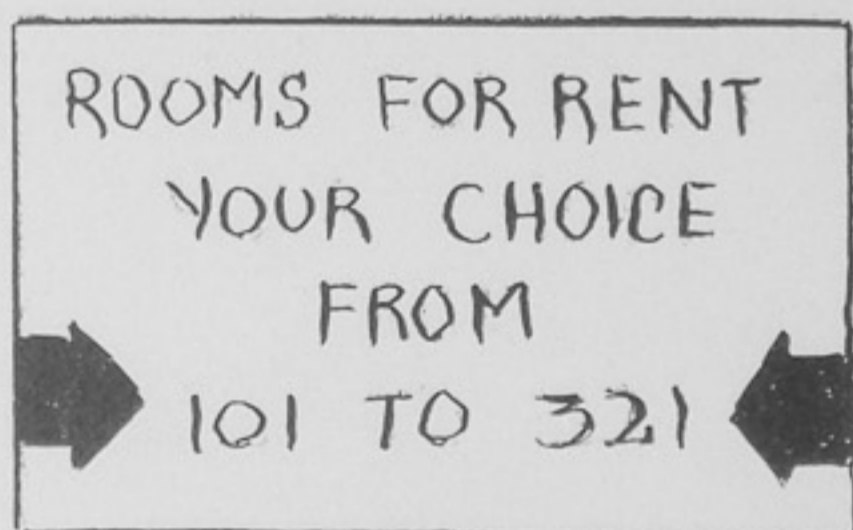 ROOMS FOR RENT
YOUR CHOICE
FROM
101 TO 321